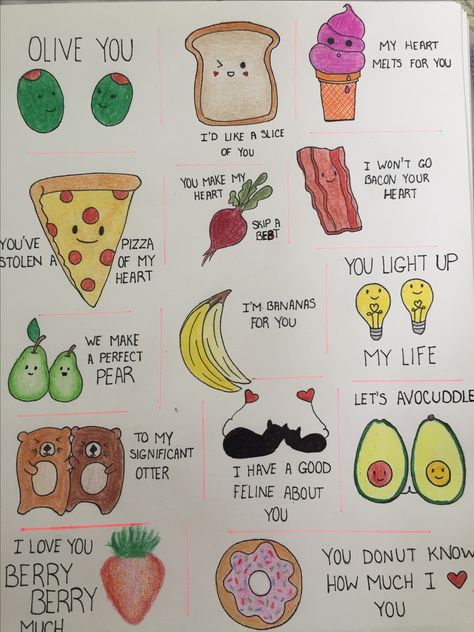 OLIVE YOU
I'D LIKE A SLICE
OF YOU
MY HEART
MELTS FOR YOU
YOU'VE
STOLEN A
PIZZA
OF MY
HEART
YOU MAKE MY
HEART
SKIP A
BEET
I WON'T GO
BACON YOUR
HEART
WE MAKE
A PERFECT
PEAR
I'M BANANAS
FOR YOU
YOU LIGHT UP
MY LIFE
TO MY
SIGNIFICANT
OTTER
I HAVE A GOOD
FELINE ABOUT
YOU
LET'S AVOCUDDLE
I LOVE YOU
BERRY
BERRY
MUCH
YOU DONUT KNOW
HOW MUCH I ❤
YOU